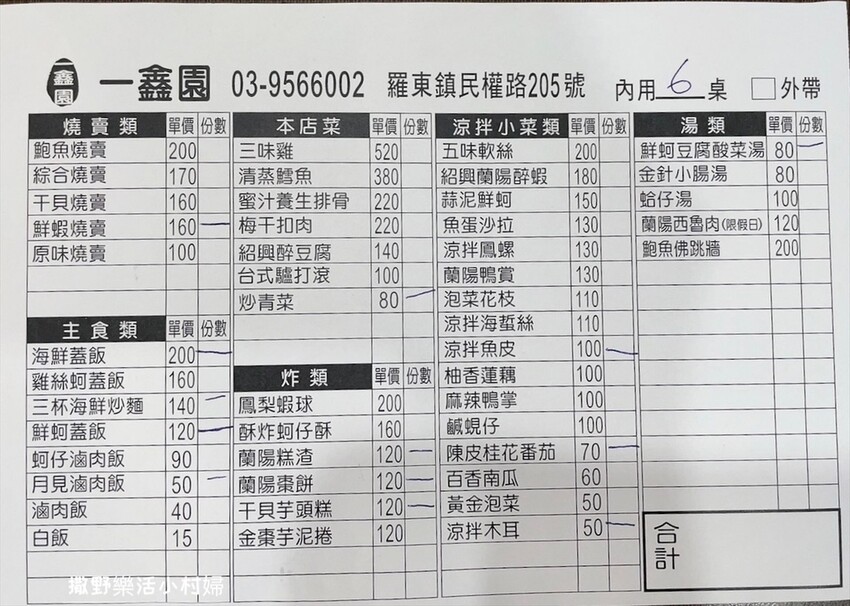 鑫園 一鑫園 03-9566002 羅東鎮民權路205號 內用 6 桌 □外帶
燒賣類 單價 份數
鮑魚燒賣 200
綜合燒賣 170
干貝燒賣 160
鮮蝦燒賣 160 一
原味燒賣 100
主食類 單價 份數
海鮮蓋飯 200 一
雞絲蚵蓋飯 160
三杯海鮮炒麵 140 一
鮮蚵蓋飯 120 一
蚵仔滷肉飯 90
月見滷肉飯 50 一
滷肉飯 40
白飯 15
本店菜 單價 份數
三味雞 520
清蒸鱈魚 380
蜜汁養生排骨 220
梅干扣肉 220
紹興醉豆腐 140
台式驢打滾 100
炒青菜 80 一
炸類 單價 份數
鳳梨蝦球 200
酥炸蚵仔酥 160
蘭陽糕渣 120 一
蘭陽棗餅 120 一
干貝芋頭糕 120 一
金棗芋泥捲 120
涼拌小菜類 單價 份數
五味軟絲 200
紹興蘭陽醉蝦 180
蒜泥鮮蚵 150
魚蛋沙拉 130
涼拌鳳螺 130
蘭陽鴨賞 130
泡菜花枝 110
涼拌海蜇絲 110
涼拌魚皮 100 一
柚香蓮藕 100
麻辣鴨掌 100
鹹蜆仔 100
陳皮桂花番茄 70 一
百香南瓜 60
黃金泡菜 50
涼拌木耳 50 一
湯類 單價 份數
鮮蚵豆腐酸菜湯 80 一
金針小腸湯 80
蛤仔湯 100
蘭陽西魯肉(限假日) 120
鮑魚佛跳牆 200
合計
撒野樂活小村婦